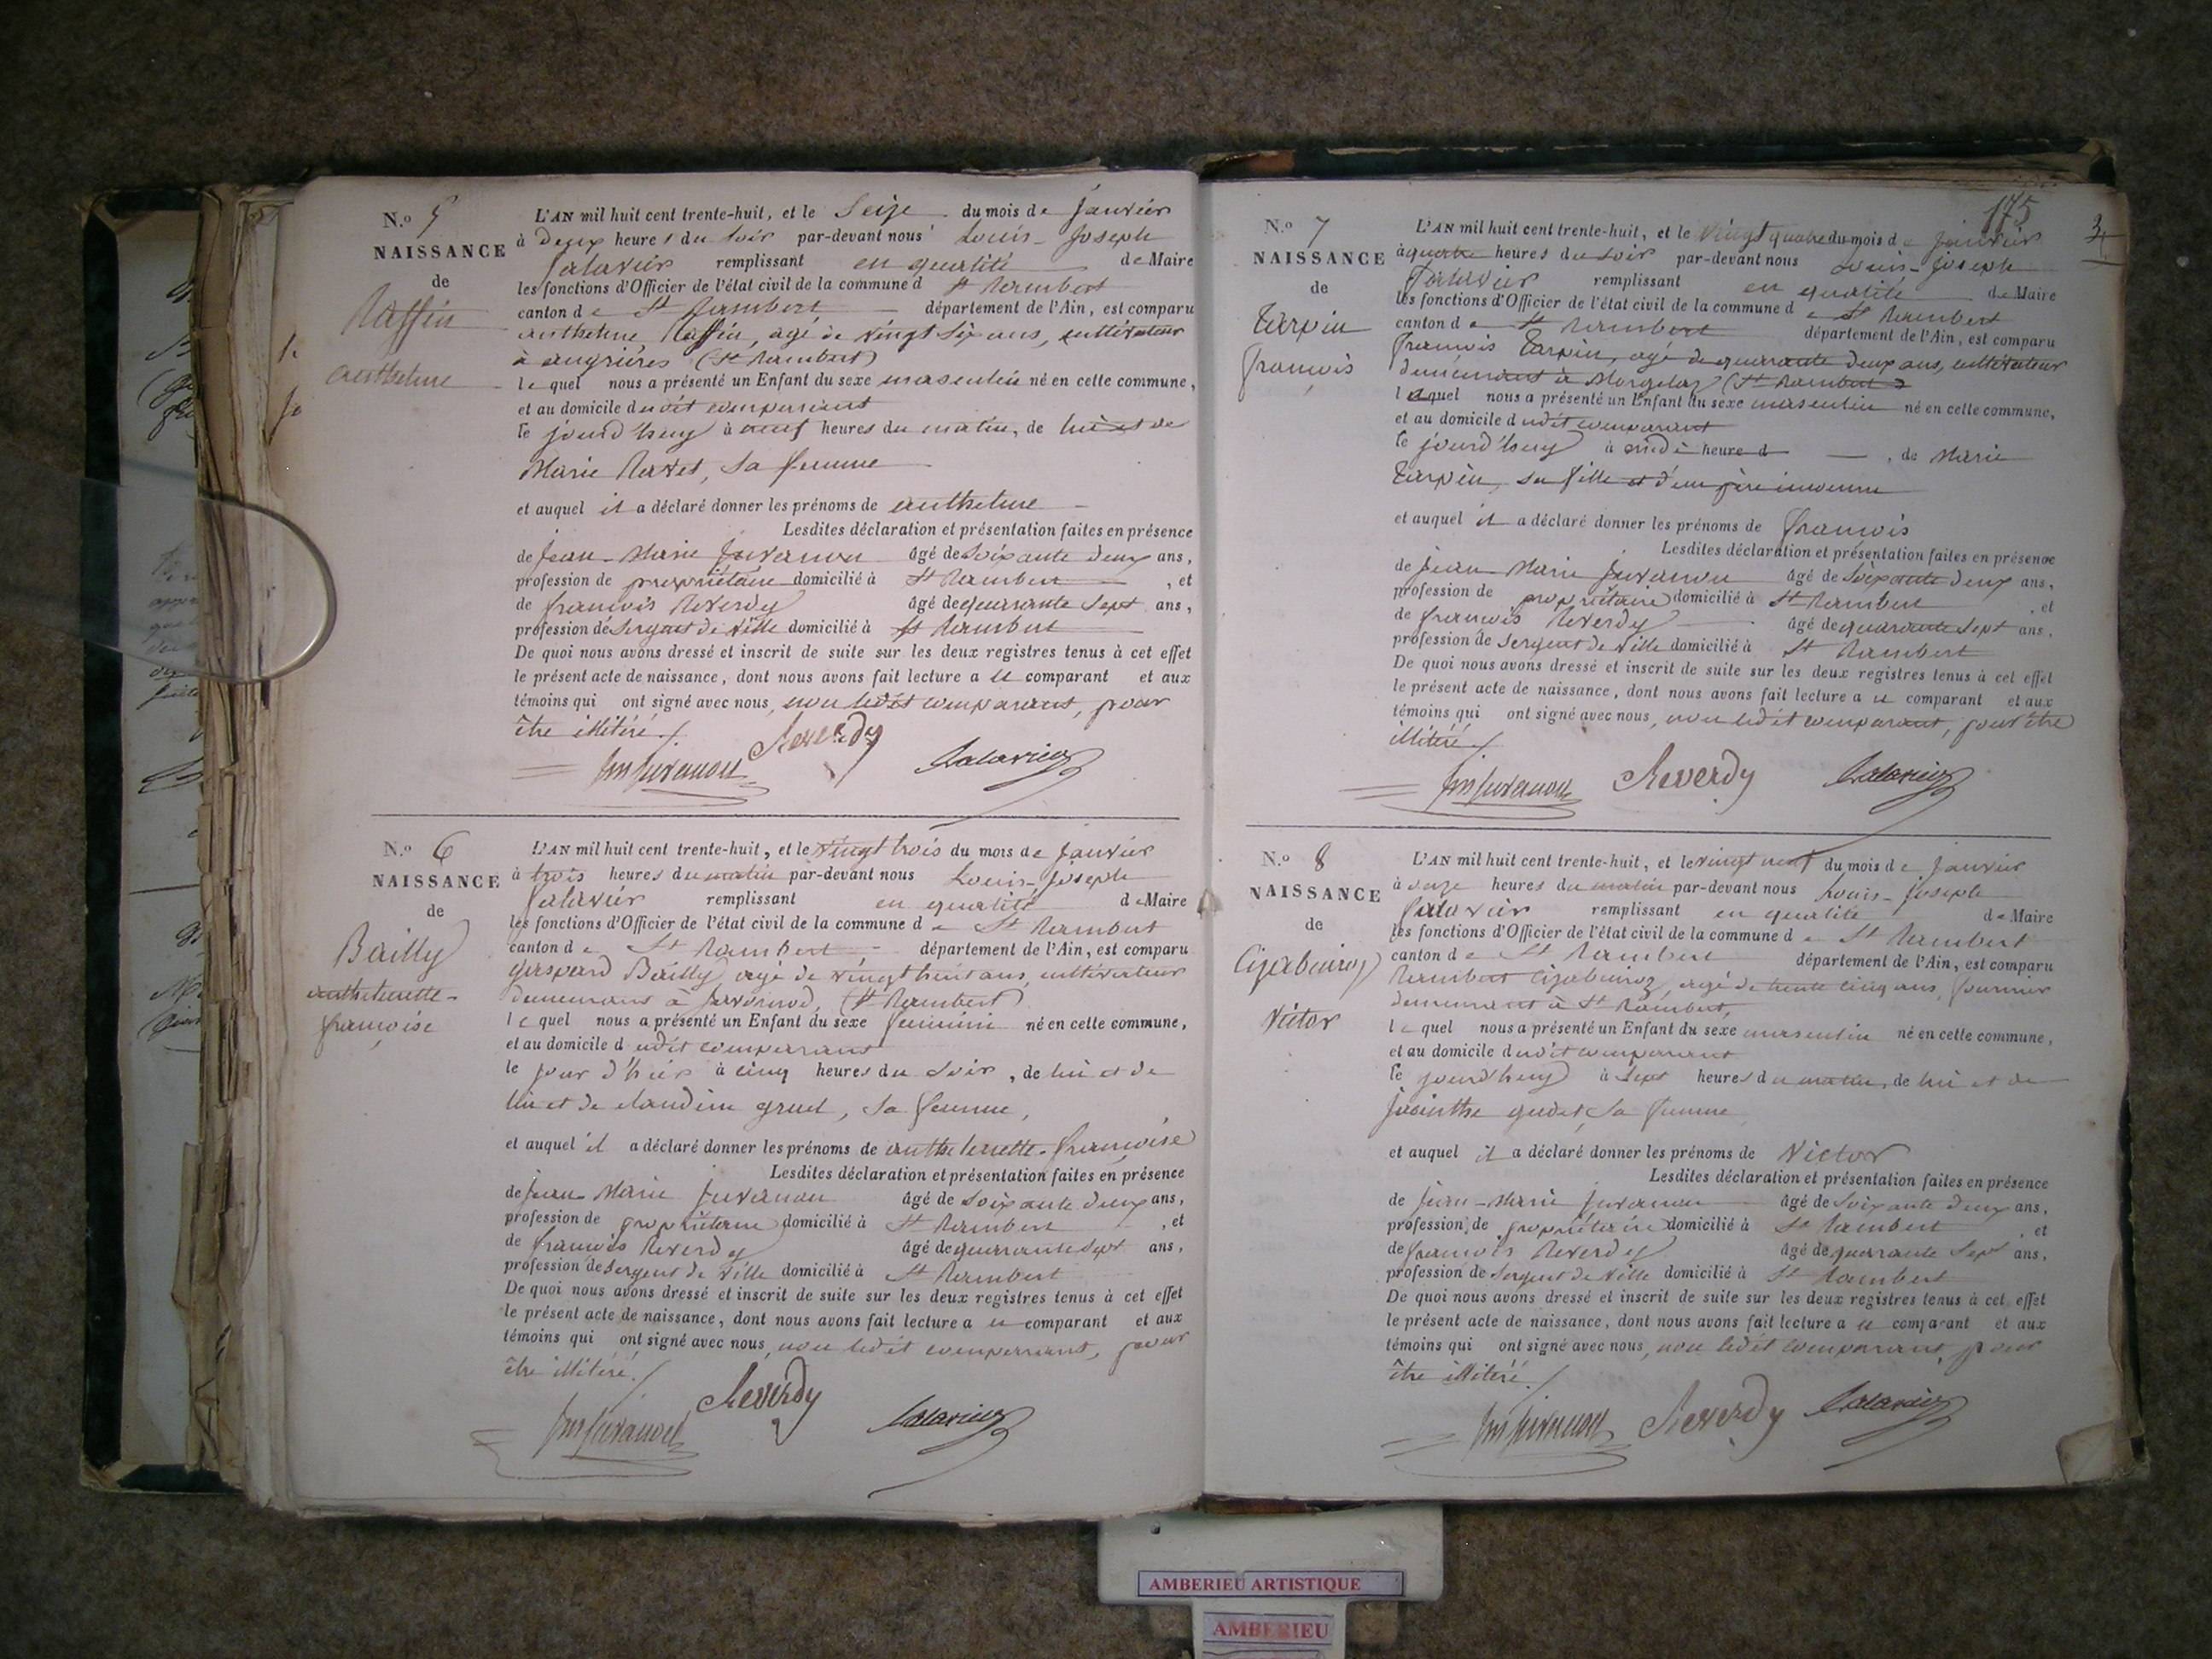 N.o 5
NAISSANCE
de
Raffin
anthelme
L'AN mil huit cent trente-huit, et le Seize du mois de Janvier
à Deux heures du Soir par-devant nous Louis-Joseph
remplissant en qualité de Maire
les fonctions d'Officier de l'état civil de la commune d St Rambert
canton de St Rambert département de l'Ain, est comparu
anthelme Raffin, agé de vingt Six ans, cultivateur
à angrières (St Rambert)
lequel nous a présenté un Enfant du sexe masculin né en cette commune,
et au domicile dudit comparant
le jourd'huy à neuf heures du matin, de lui et de
Marie Ravet, Sa femme
et auquel il a déclaré donner les prénoms de anthelme
Lesdites déclaration et présentation faites en présence
de Jean-Marie Juvanon âgé de Soixante deux ans,
profession de propriétaire domicilié à St Rambert , et
de françois Reverdy âgé de quarante Sept ans,
profession de Sergent de Ville domicilié à St Rambert
De quoi nous avons dressé et inscrit de suite sur les deux registres tenus à cet effet
le présent acte de naissance, dont nous avons fait lecture a u comparant et aux
témoins qui ont signé avec nous, non ledit comparant, pour
être illitéré ./.
Jm Juvanon Reverdy
N.o 6
NAISSANCE
de
Bailly
anthelmette-
françoise
L'AN mil huit cent trente-huit, et le vingt trois du mois de Janvier
à trois heures du matin par-devant nous Louis-Joseph
remplissant en qualité de Maire
les fonctions d'Officier de l'état civil de la commune de St Rambert
canton de St Rambert département de l'Ain, est comparu
gaspard Bailly, agé de vingt huit ans, cultivateur
demeurant à Javornod, (St Rambert)
lequel nous a présenté un Enfant du sexe féminin né en cette commune,
et au domicile dudit comparant
le jour d'hier à cinq heures du Soir, de lui et de
lui et de claudine gruel, Sa femme,
et auquel il a déclaré donner les prénoms de anthelmette-françoise
Lesdites déclaration et présentation faites en présence
de Jean-Marie Juvanon âgé de Soixante deux ans,
profession de propriétaire domicilié à St Rambert , et
de françois Reverdy âgé de quarante Sept ans,
profession de Sergent de Ville domicilié à St Rambert
De quoi nous avons dressé et inscrit de suite sur les deux registres tenus à cet effet
le présent acte de naissance, dont nous avons fait lecture a u comparant et aux
témoins qui ont signé avec nous, non ledit comparant, pour
être illitéré ./.
Jm Juvanon Reverdy
175
N.o 7
NAISSANCE
de
Tarpin
françois
L'AN mil huit cent trente-huit, et le vingt quatre du mois de Janvier
à quatre heures du Soir par-devant nous Louis-Joseph
remplissant en qualité de Maire
les fonctions d'Officier de l'état civil de la commune de St Rambert
canton de St Rambert département de l'Ain, est comparu
françois Tarpin, agé de quarante deux ans, cultivateur
demeurant à Morgelaz (St Rambert)
lequel nous a présenté un Enfant du sexe masculin né en cette commune,
et au domicile dudit comparant
le jourd'huy à midi heure d , de Marie
Tarpin, Sa fille et d'un père inconnu
et auquel il a déclaré donner les prénoms de françois
Lesdites déclaration et présentation faites en présence
de Jean-Marie Juvanon âgé de Soixante deux ans,
profession de propriétaire domicilié à St Rambert , et
de françois Reverdy âgé de quarante Sept ans,
profession de Sergent de Ville domicilié à St Rambert
De quoi nous avons dressé et inscrit de suite sur les deux registres tenus à cet effet
le présent acte de naissance, dont nous avons fait lecture a u comparant et aux
témoins qui ont signé avec nous, non ledit comparant, pour être
illitéré ./.
Jm Juvanon Reverdy
N.o 8
NAISSANCE
de
Victor
L'AN mil huit cent trente-huit, et le vingt neuf du mois de Janvier
à onze heures du matin par-devant nous Louis-Joseph
remplissant en qualité de Maire
les fonctions d'Officier de l'état civil de la commune de St Rambert
canton de St Rambert département de l'Ain, est comparu
Rambert agé de trente cinq ans, fournier
demeurant à St Rambert,
lequel nous a présenté un Enfant du sexe masculin né en cette commune,
et au domicile dudit comparant
le jourd'huy à Sept heures du matin, de lui et de
Jacinthe gudet, Sa femme
et auquel il a déclaré donner les prénoms de Victor
Lesdites déclaration et présentation faites en présence
de Jean-Marie Juvanon âgé de Soixante deux ans,
profession de propriétaire domicilié à St Rambert , et
de françois Reverdy âgé de quarante Sept ans,
profession de Sergent de Ville domicilié à St Rambert
De quoi nous avons dressé et inscrit de suite sur les deux registres tenus à cet effet
le présent acte de naissance, dont nous avons fait lecture a u comparant et aux
témoins qui ont signé avec nous, non ledit comparant, pour
être illitéré ./.
Jm Juvanon Reverdy
AMBERIEU ARTISTIQUE
AMBERIEU